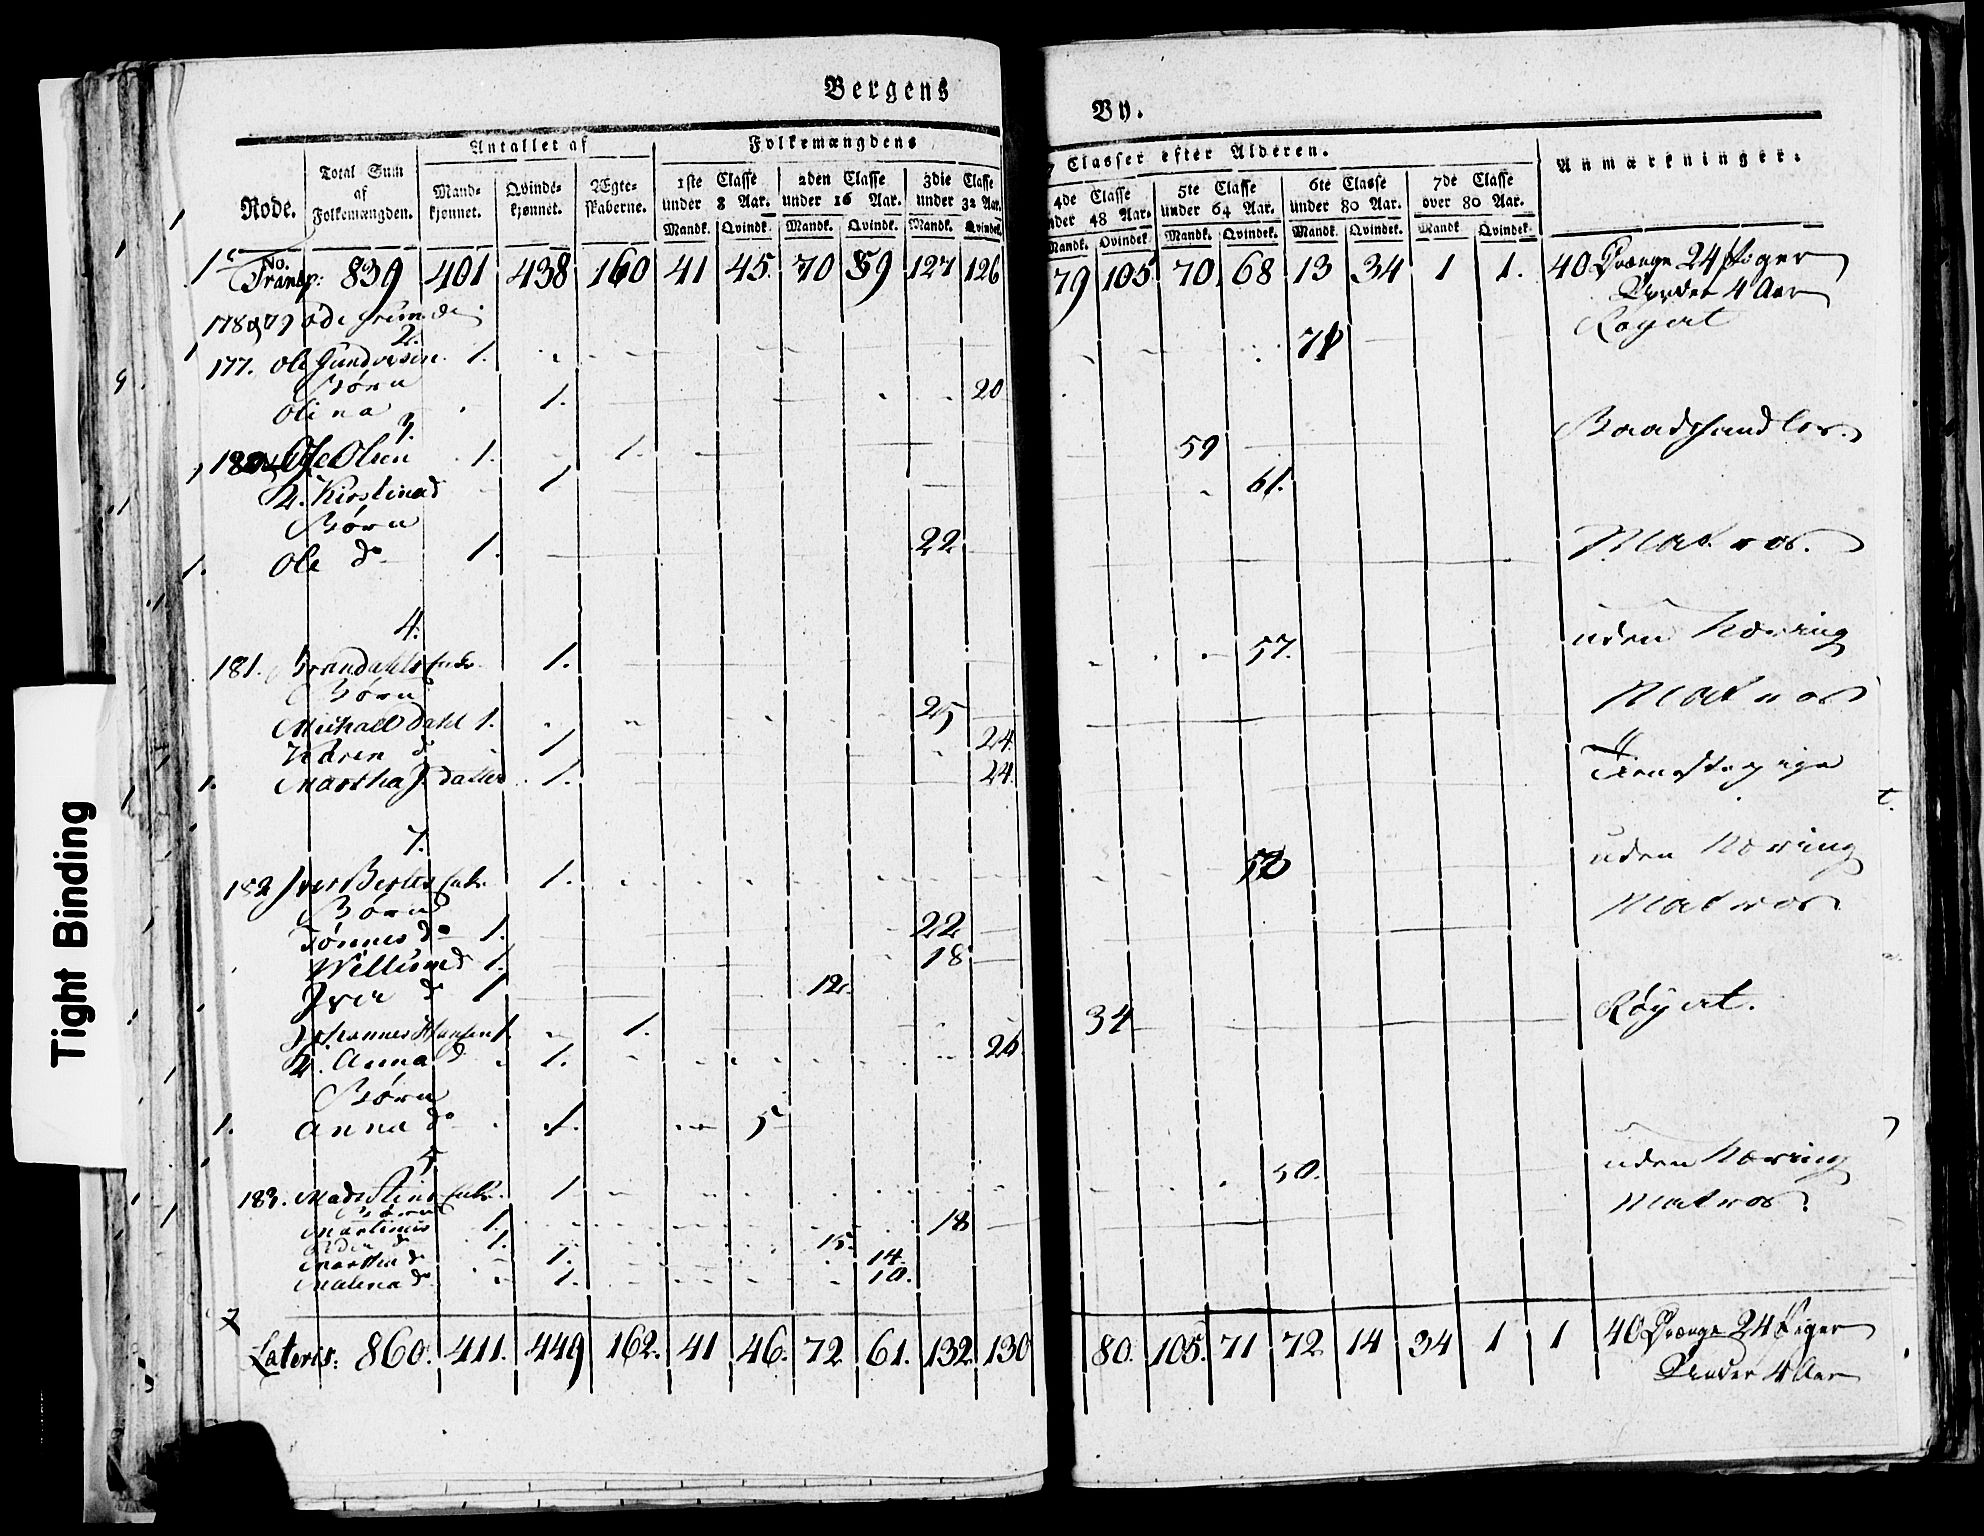 Tight Binding
Bergens By.
Rode.
Total Sum af Folkemængden.
Antallet af
Mandkjønnet. Qvindekjønnet. Ægteskaberne.
Folkemængdens 7 Classer efter Alderen.
1ste Classe under 8 Aar. 2den Classe under 16 Aar. 3die Classe under 32 Aar. 4de Classe under 48 Aar. 5te Classe under 64 Aar. 6te Classe under 80 Aar. 7de Classe over 80 Aar.
Mandk. Qvindk. Mandk. Qvindk. Mandk. Qvindek. Mandk. Qvindek. Mandk. Qvindek. Mandk. Qvindek. Mandk Qvindek.
Anmærkninger.
No.
Transp: 839 401 438 160 41 45 70 59 127 126 79 105 70 68 13 34 1 1. 40 Drenge 24 Piger
Under 4 Aar
178 & 79 øde Grunde
2.
177. Ole Gundersen 1. 71 Røgert
Børn
Olina 1. 20
3.
Ole Olsen 1. 1. 59 Baadshandler.
K. Kirstina d 1 61.
Børn
Ole do 1. 22 Matros.
4.
181. Enke 1. 57. uden Næring
Børn
Michael Dahl 1. 25 Matros
Karen d 1 24.
Martha J. datter 1. 24. Tienestepige
7.
182 Iver Enke 1. uden Næring
Børn
Tønnes do 1. 22 Matros
Willum d 1. 18
Iver d 1 12.
Johannes Hansen 1. 1. 34 Røgert.
K. Anna d 1. 26.
Børn
Anna do 1. 5
5
183. Mads Enke 1. 50. uden Næring
Børn
Martinus 1. 18 Matros
1. 15.
Martha d 1. 14.
Malena do 1. 10.
Lateris: 860. 411. 449 162. 41 46. 72 61. 132 130 80. 105. 71 72 14 34 1 1 40 Drenge 24 Piger
Under 4 Aar